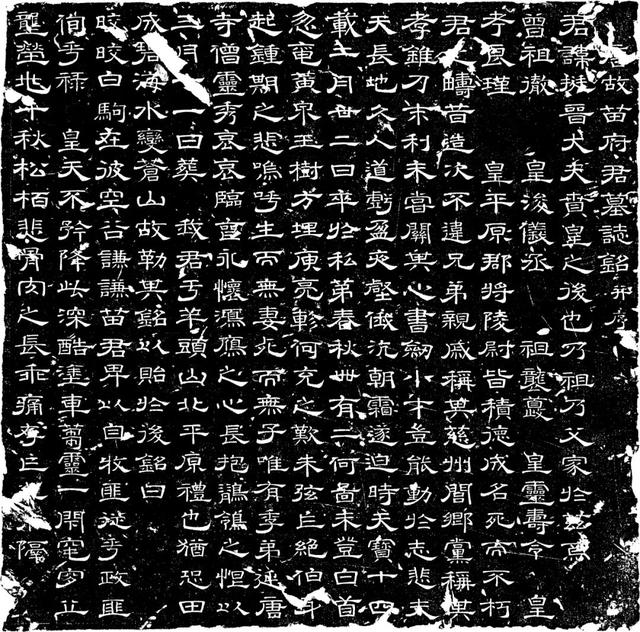 唐故苗府君墓誌銘并序
君諱挺晉大夫賁皇之後也乃祖乃父家於茲焉
曾祖徹 皇浚儀丞 祖襲夔 皇靈壽令 皇
考良瑾 皇平原郡將陵尉皆積德成名死而不朽
君之疇昔造次不違兄弟親戚稱其慈州閭鄉黨稱其
孝錐刀末利未嘗關其心書劍小才豈能動於志悲夫
天長地久人道虧盈夜壑俄沉朝霜遂迫時天寶十四
載二月廿二日卒於私第春秋卌有二何圖未登白首
忽奄黃泉玉樹方埋庾亮軫何充之歎朱弦已絕伯牙
起鍾期之悲嗚呼生而無妻死而無子唯有季弟延唐
寺僧靈秀哀哀臨壙永懷鴈之心長抱鶺鴒之怛以
三月十一日葬 我君于羊頭山北平原禮也猶恐田
成碧海水變蒼山故勒其銘以貽於後銘曰
皎皎白駒在彼空谷謙謙苗君卑以自牧匪從于政匪
徇于祿 皇天不矜降此深酷塗車蒭靈一閉窀穸止
壟塋兆千秋松柏悲骨肉之長乖痛存亡隔